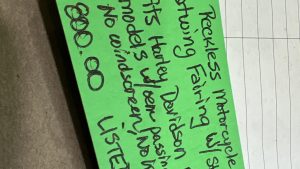 Reckless Motorcycle
Batwing Fairing w/ S
its Harley Davidson
models w/ oem passin
No windscreen, No
800.00 LISTE